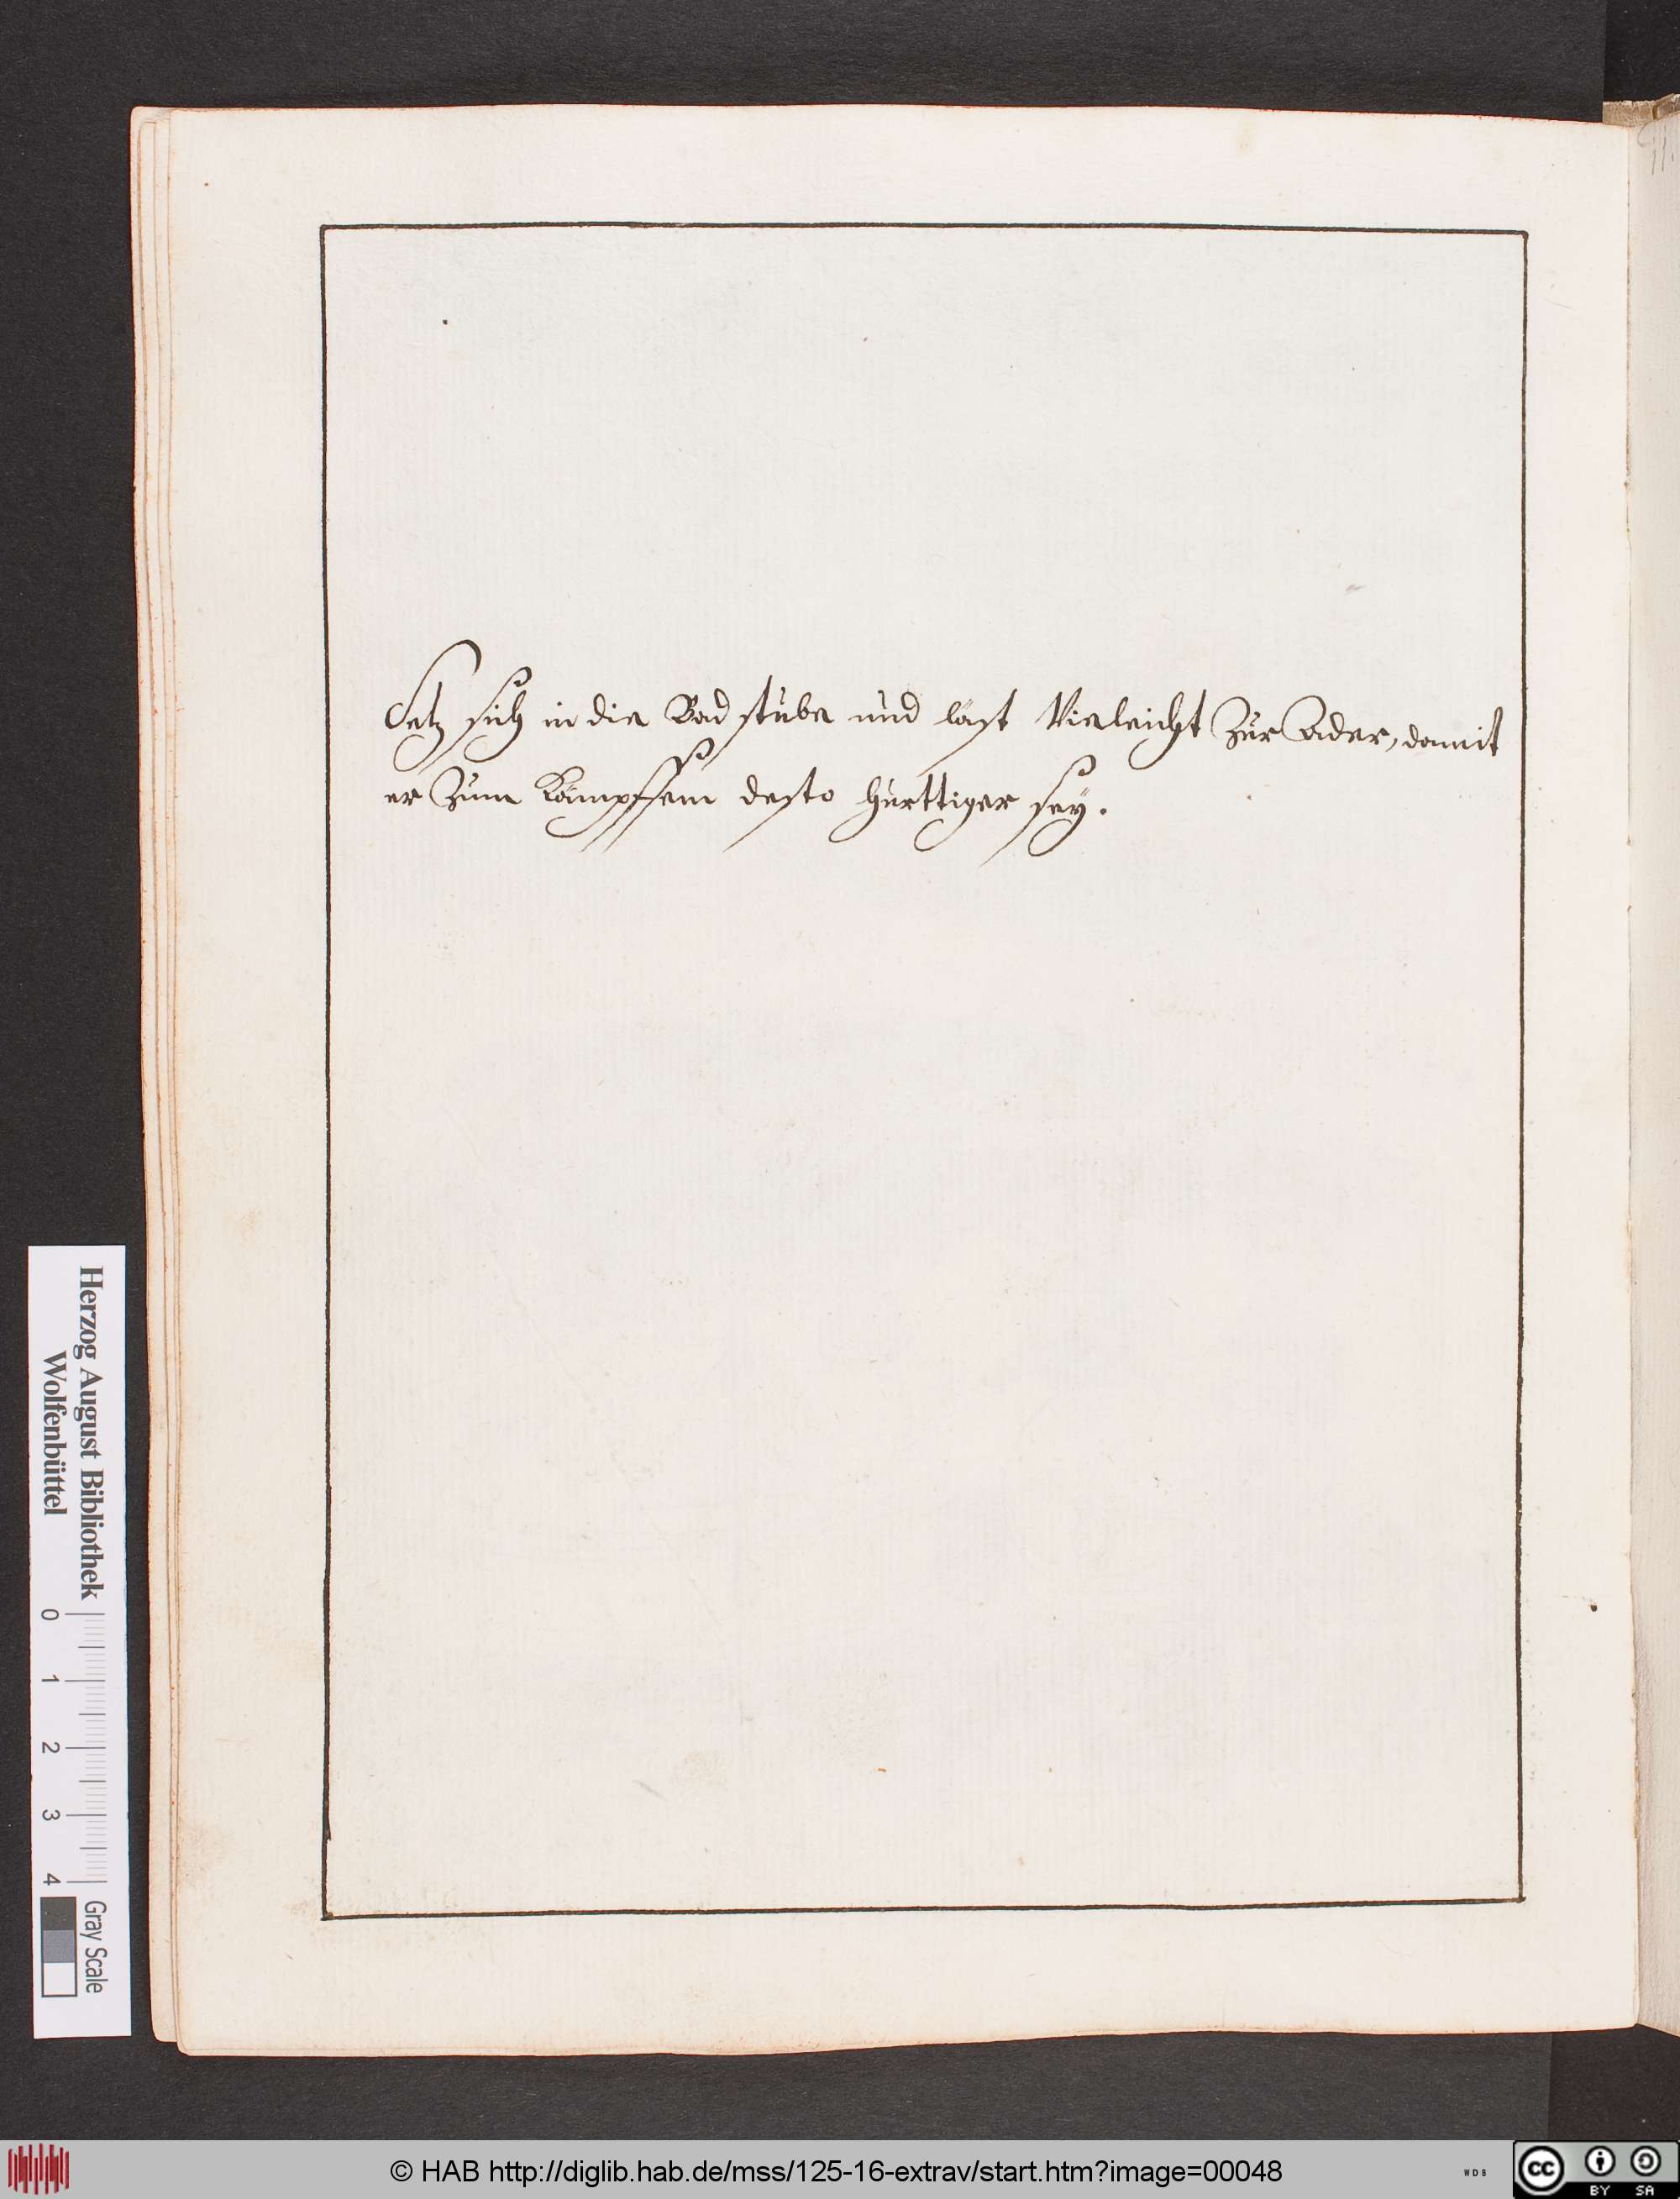 Setz sich in die Badstube und läst Vieleicht Zur Ader, damit
er Zum Kämpffem desto hurttiger sey.
Herzog August Bibliothek
Wolfenbüttel
0 1 2 3 4
Gray Scale
© HAB http://diglib.hab.de/mss/125-16-extrav/start.htm?image=00048
WDB
cc BY SA